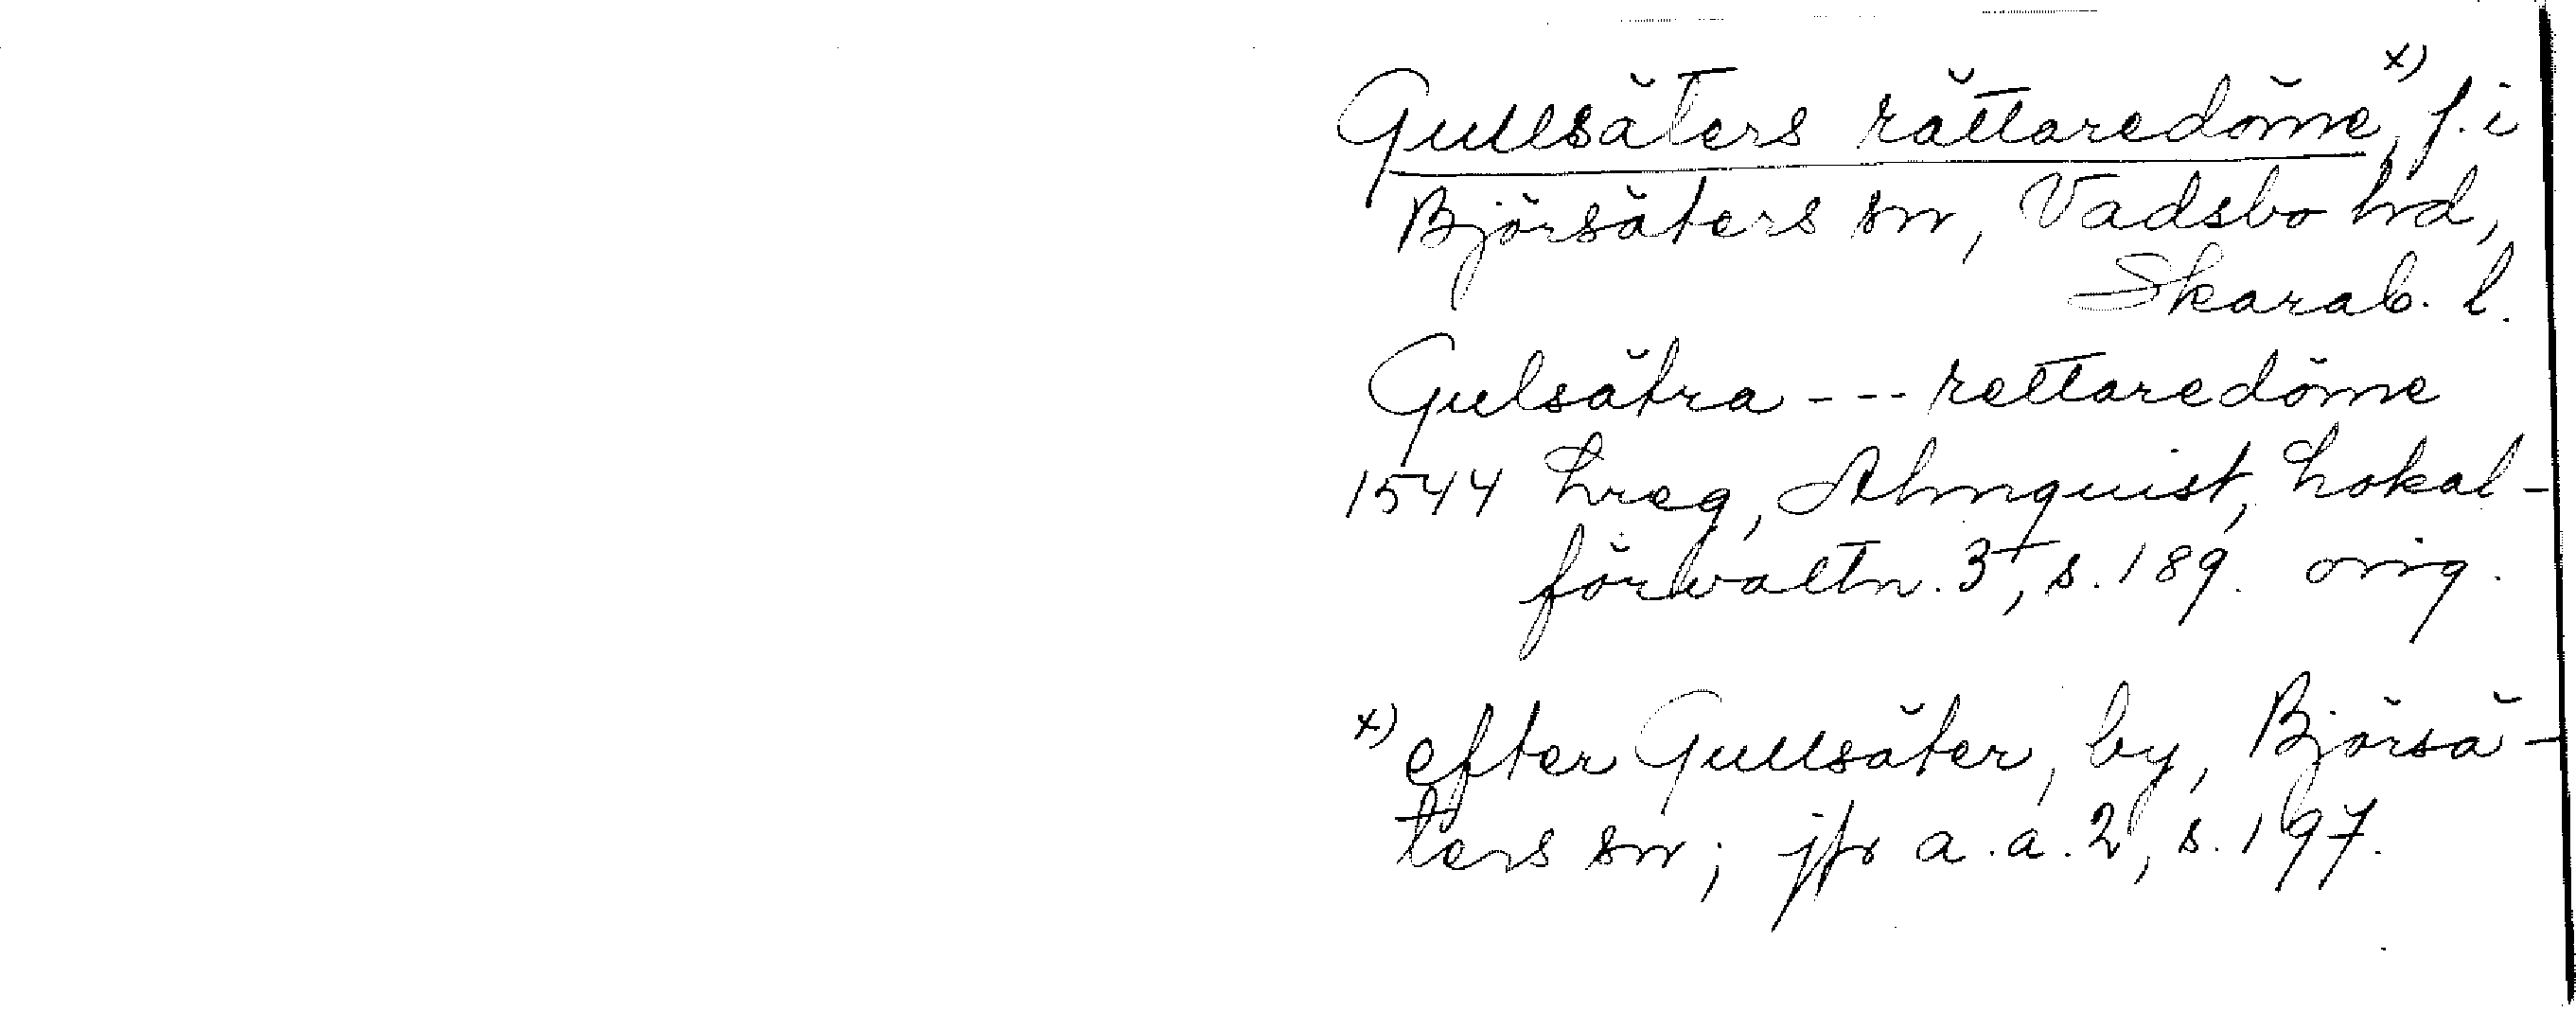 Gullsäters rättaredöme x), f. i
Björsäters sn, Vadsbo hd,
Skarab. l.
Gulsätra --- rettaredöme
1544 Lreg, Almquist, Lokal-
förvaltn. 3, s. 189. orig.
x) efter Gullsäter, by, Björsä-
ters sn; jfr a.a. 2, s. 197.